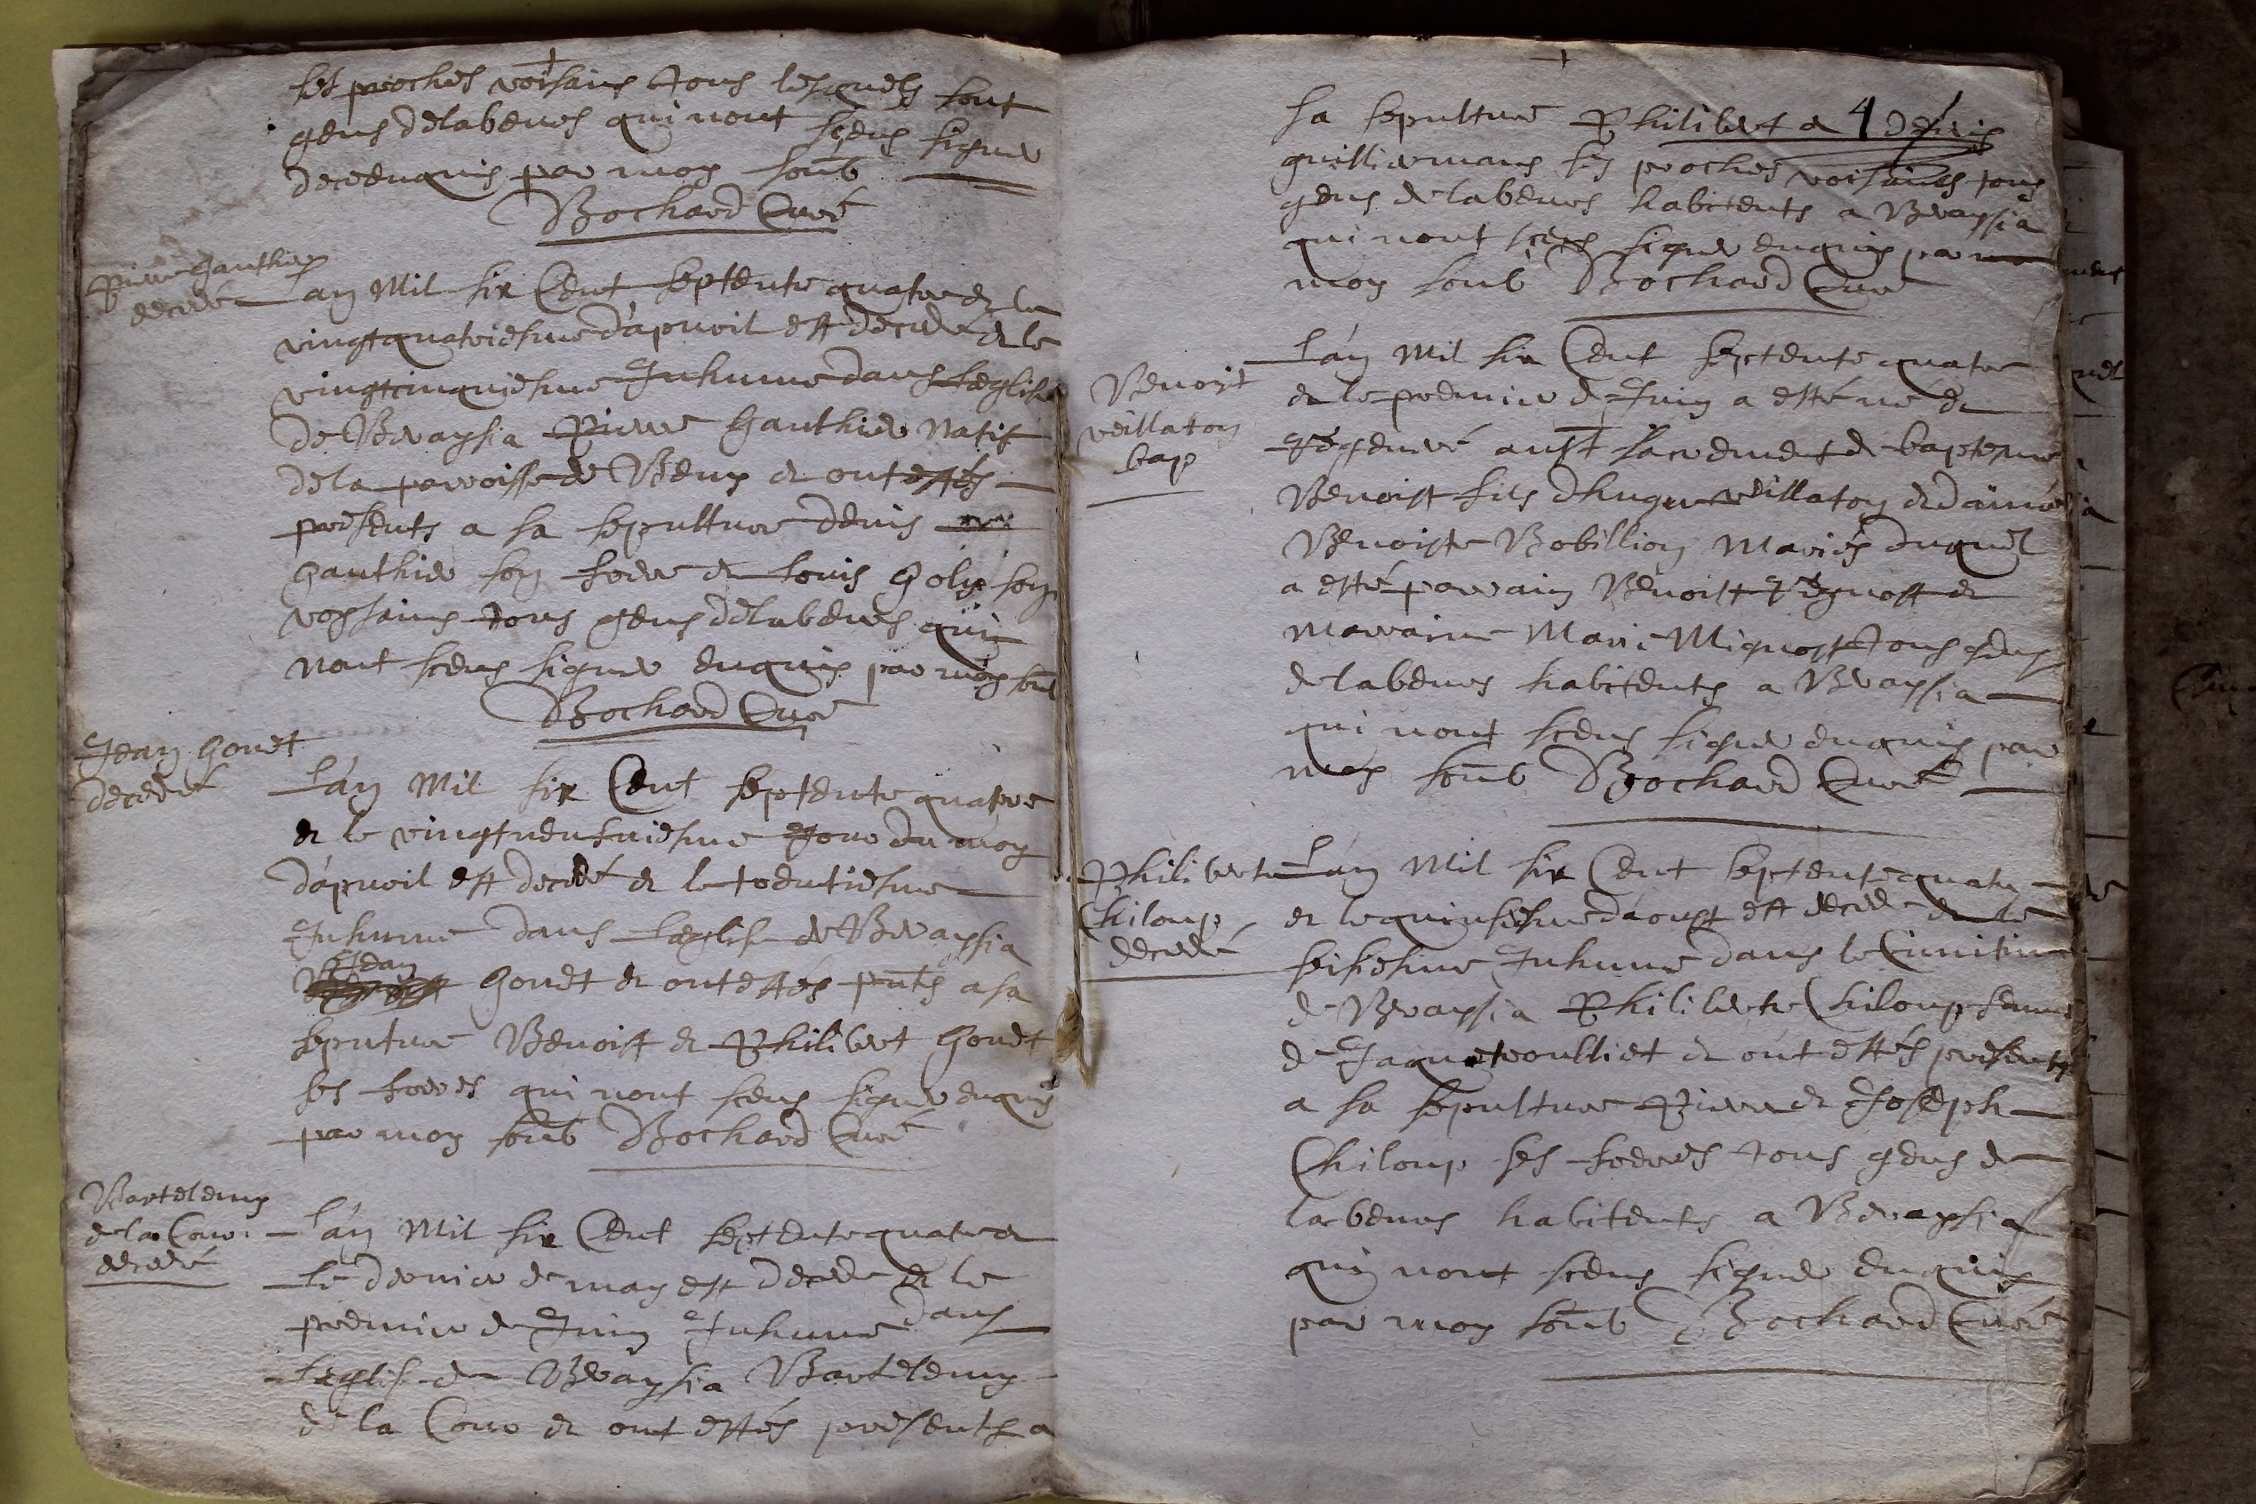 ses proches voisains tous lesquels sont
gens delabeurs qui nont sceus signer
de ce enquis par moy soub
Bochard Curé
Pierre Gauthier
decedé
Lan Mil six Cent septente quatre et le
vingtquatriesme dapvril est decedé et le
vingtcinquiesme Inhumé dans Leglise
de Breaysia Pierre Gauthier Natif
de la parroisse de Beny et ont estés
presents a sa sepultture denis
Gauthier son frere et Louis Goly son
voysains tous gens delabeurs qui
nont sceus signer enquis par moy soub
Bochard Curé
Jean Gouet
decedé
Lan Mil six Cent septente quatre
et le vingtneufviesme Jour du moy
dapvril est decedé et le trentiesme
Inhumé dans Leglise de Breaysia
Jean
Gouet et ont estés pnts a sa
seputure Benoist et Philibert Gouet
ses freres qui nont sceus signer enquis
par moy soub Bochard Curé
Bartelemy
de la Cour
decedé
Lan Mil six Cent septente quatre et
Le dernier de may est decedé et le
premier de Juin Inhumé dans
Leglise de Breaysia Bartelemy
de la Cour et ont estés presents a
sa sepultture Philibert et 4 denis
guilliermans ses proches voisains tous
gens de labeurs habitents a Breaysia
qui nont sceus signer enquis par
moy soub Bochard Curé
Benoist
veillaton
bap
Lan Mil six Cent septente quatre
et le premier de Juin a esté né et
regeneré au st sacrement de baptesme
Benoist fils dhugue veillaton et daimé
Benoiste Bobillion Mariés duquel
a esté parrain Benoist regnost et
Marraine Marie Mignost tous gens
de labeurs habitents a Breaysia
qui nont sceus signer enquis par
moy soub Bochard Curé
Philiberte
Chiloup
decedé
Lan Mil six Cent septente quatre
et le quinsiesme daoust est decede et le
seisiesme Inhumé dans le Cimitiere
de Breaysia Philiberte Chiloup femme
de Jaque troulliet et ont estés presents
a sa sepultture Pierre et Joseph
Chiloup ses freres tous gens de
labeurs habitents a Breaysia
qui nont sceus signer enquis
par moy soub Bochard Curé